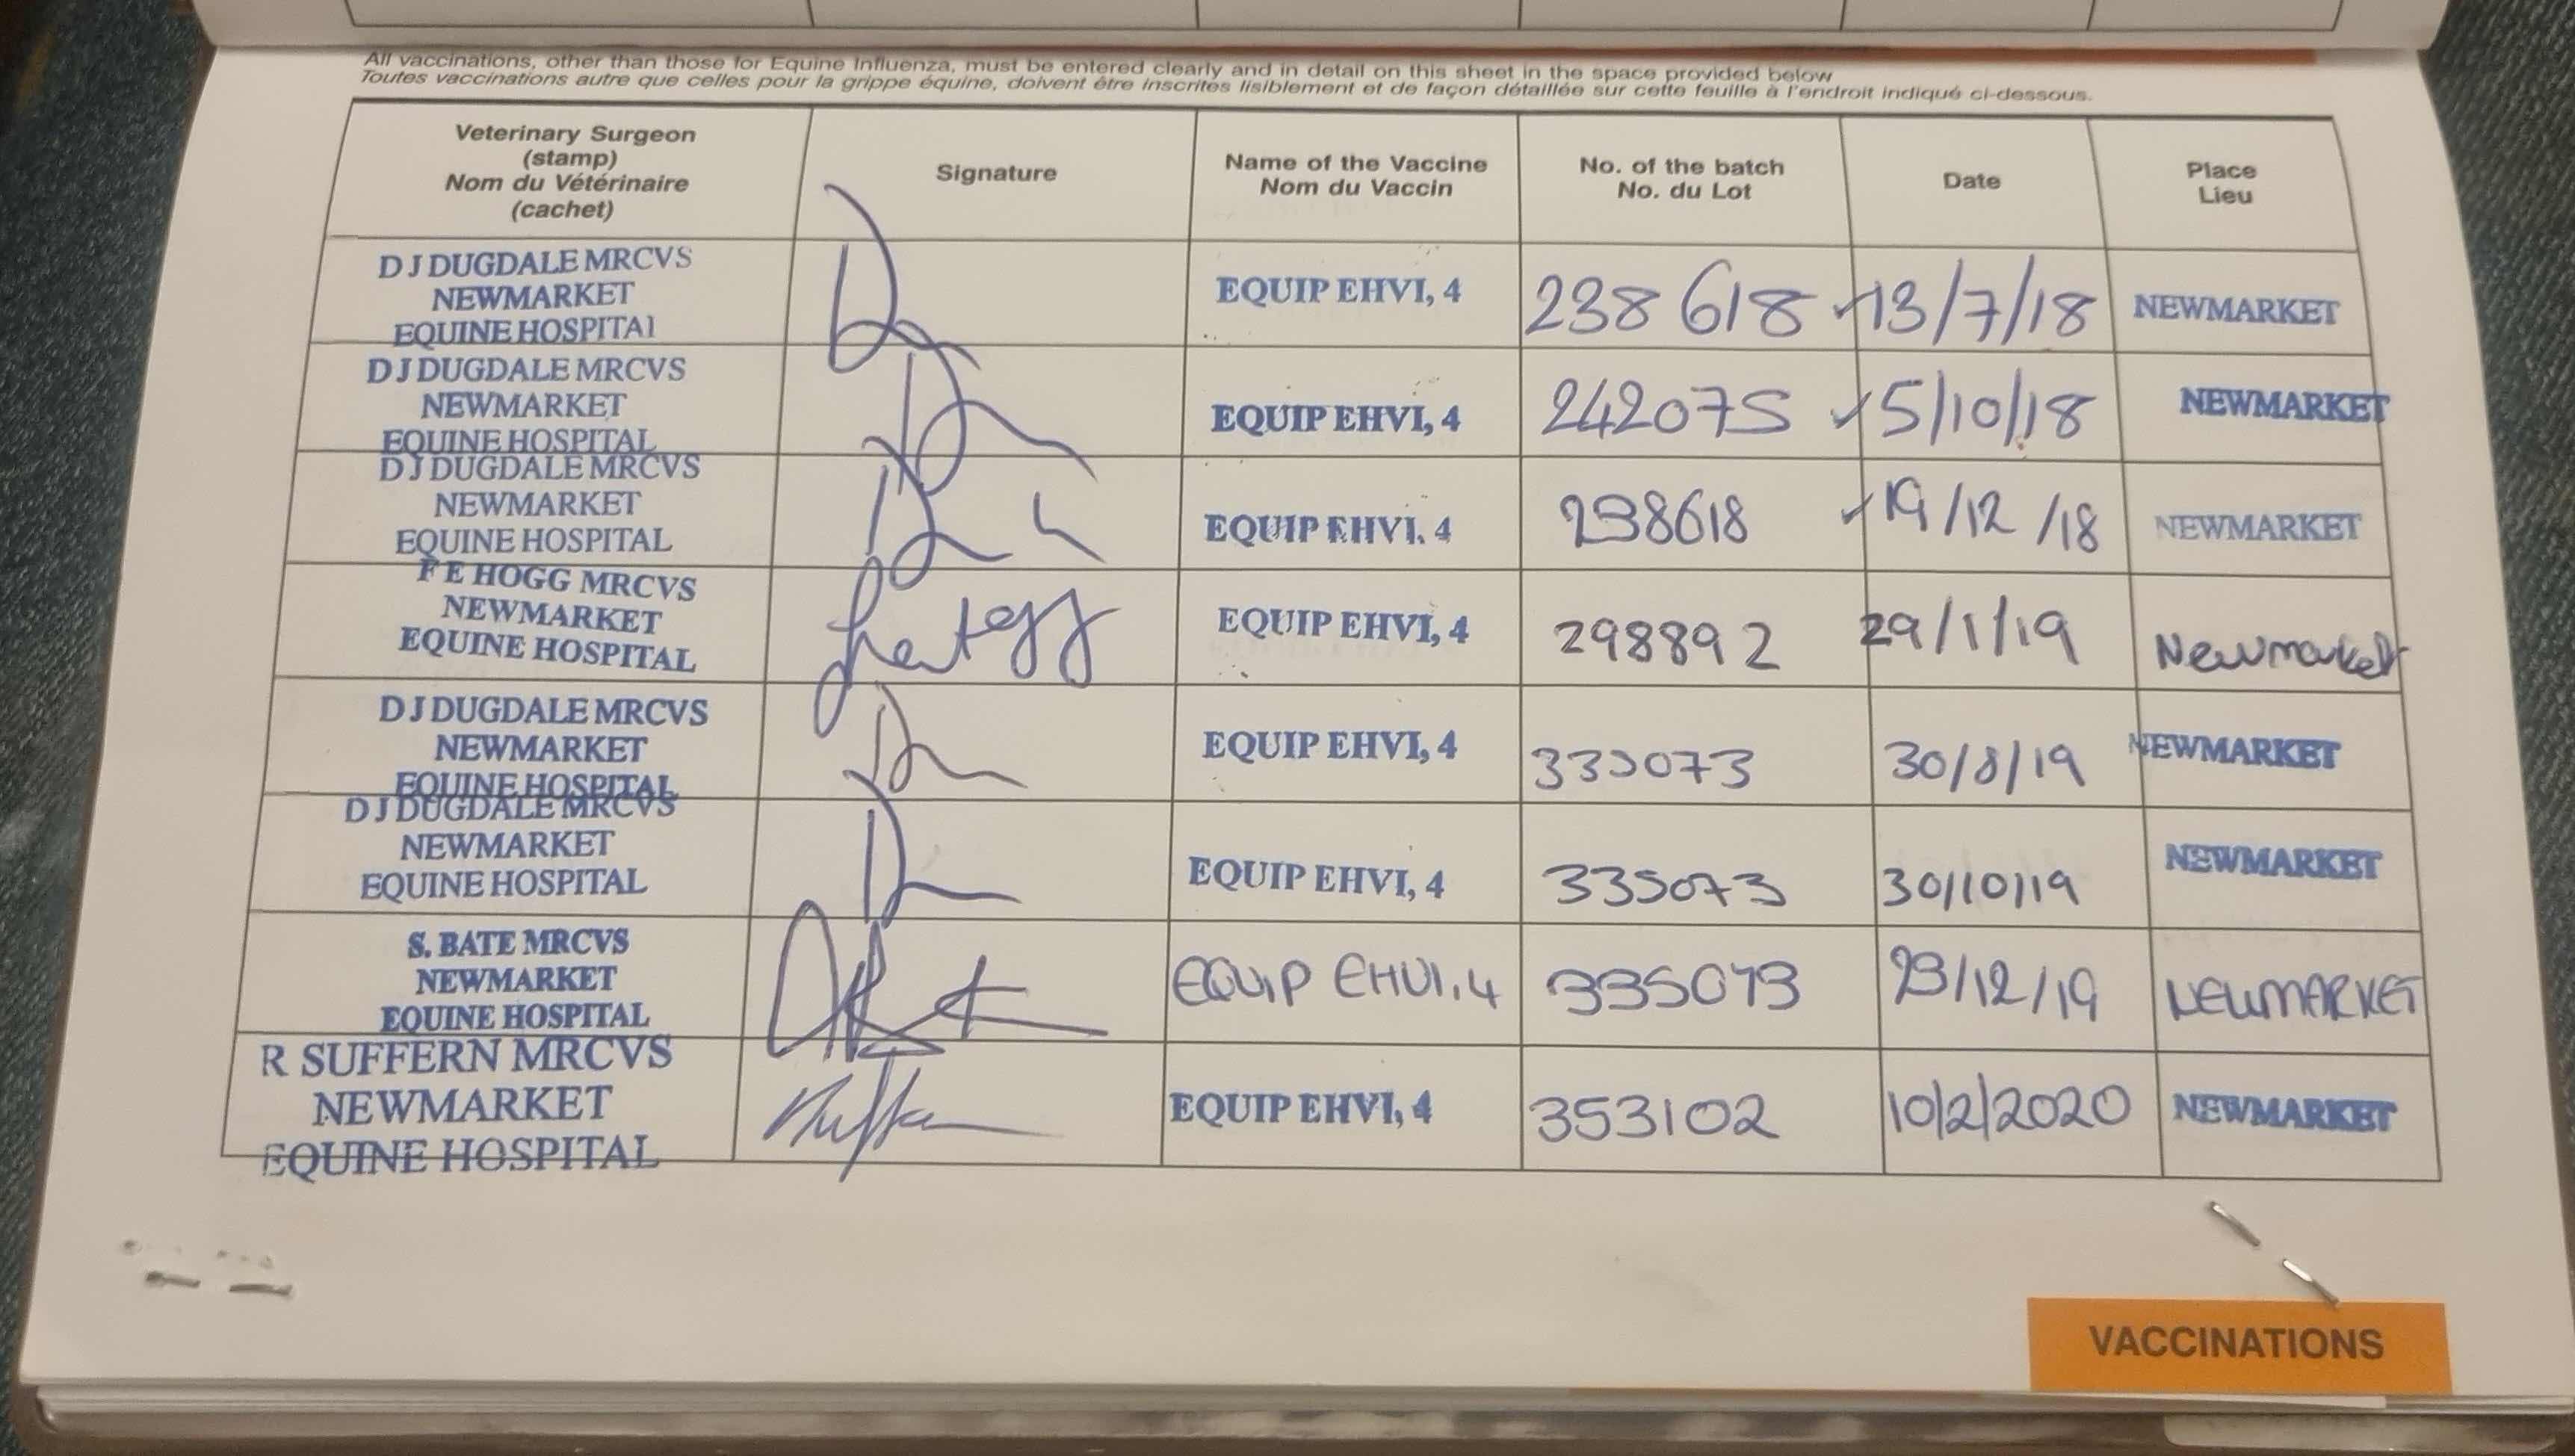 All vaccinations, other than those for Equine Influenza, must be entered clearly and in detail on this sheet in the space provided below
Toutes vaccinations autre que celles pour la grippe équine, doivent être inscrites lisiblement et de façon détaillée sur cette feuille à l'endroit indiqué ci-dessous.
Veterinary Surgeon
(stamp)
Nom du Vétérinaire
(cachet)
Signature
Name of the Vaccine
Nom du Vaccin
No. of the batch
No. du Lot
Date
Place
Lieu
D J DUGDALE MRCVS
NEWMARKET
EQUINE HOSPITAL
EQUIP EHVI, 4
238618
13/7/18
NEWMARKET
D J DUGDALE MRCVS
NEWMARKET
EQUINE HOSPITAL
EQUIP EHVI, 4
242075
5/10/18
NEWMARKET
D J DUGDALE MRCVS
NEWMARKET
EQUINE HOSPITAL
EQUIP EHVI, 4
298618
19/12/18
NEWMARKET
F E HOGG MRCVS
NEWMARKET
EQUINE HOSPITAL
EQUIP EHVI, 4
298892
29/1/19
Newmarket
D J DUGDALE MRCVS
NEWMARKET
EQUINE HOSPITAL
EQUIP EHVI, 4
335073
30/8/19
NEWMARKET
D J DUGDALE MRCVS
NEWMARKET
EQUINE HOSPITAL
EQUIP EHVI, 4
335073
30/10/19
NEWMARKET
S. BATE MRCVS
NEWMARKET
EQUINE HOSPITAL
EQUIP EHVI,4
335073
23/12/19
NEWMARKET
R SUFFERN MRCVS
NEWMARKET
EQUINE HOSPITAL
EQUIP EHVI, 4
353102
10/2/2020
NEWMARKET
VACCINATIONS